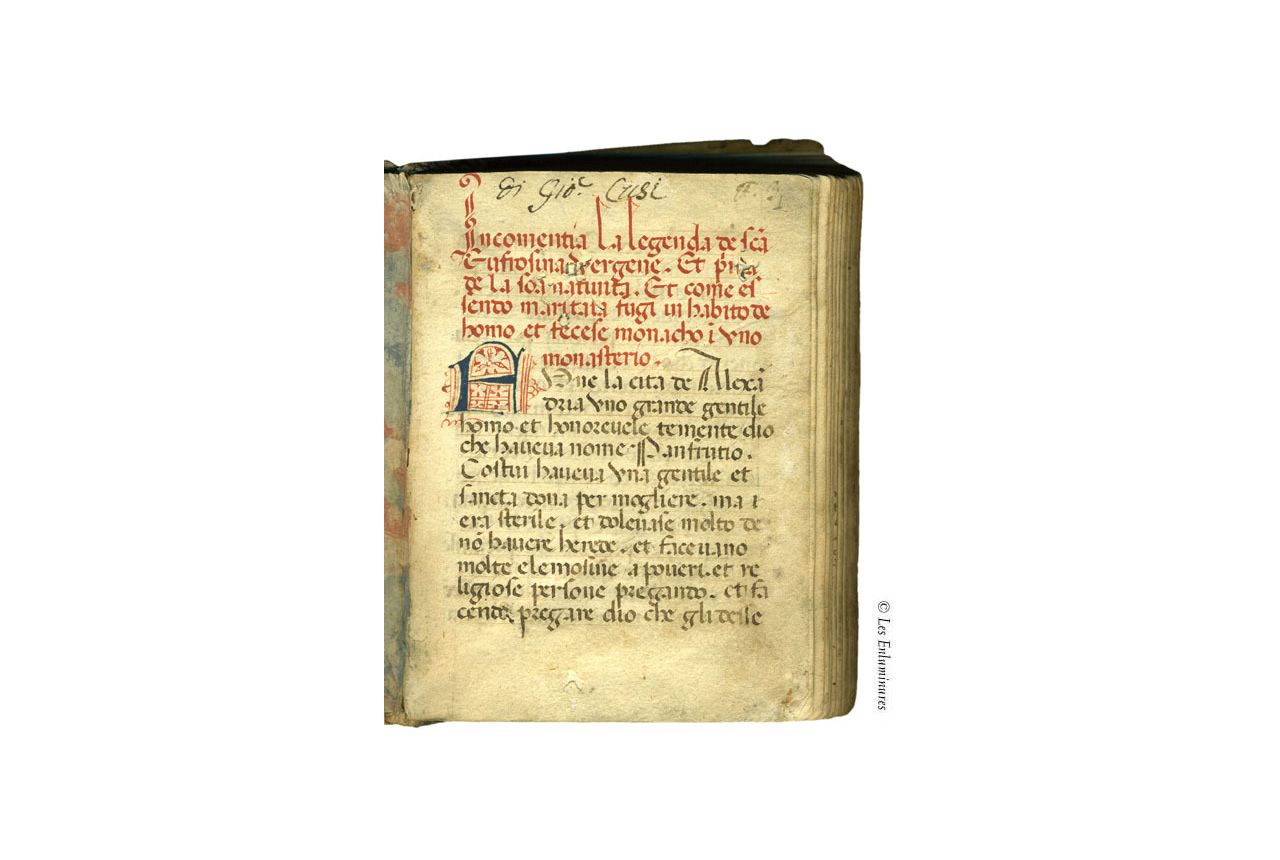 di Gio.^c Cusi
Incomentia La Legenda de sc̄a
Eufrosina vergene. Et p̄ma
de la sc̄a natiuita. Et come es
sendo maritata fugi in habito de
homo et fecese monacho ī vno
monasterio.
A Nue la cita de Alexā
dria vno grande gentile
homo et honoreuele temente dio
che haueua nome Panfrutio.
Costui haueua vna gentile et
sancta dona per mogliere. ma i
era sterile. et doleuase molto de
nō hauere herede. et faceuano
molte elemosine a poueri. et re
ligiose persone pregando. et fa
cendo pregare dio che gli desse
© Les Enluminures